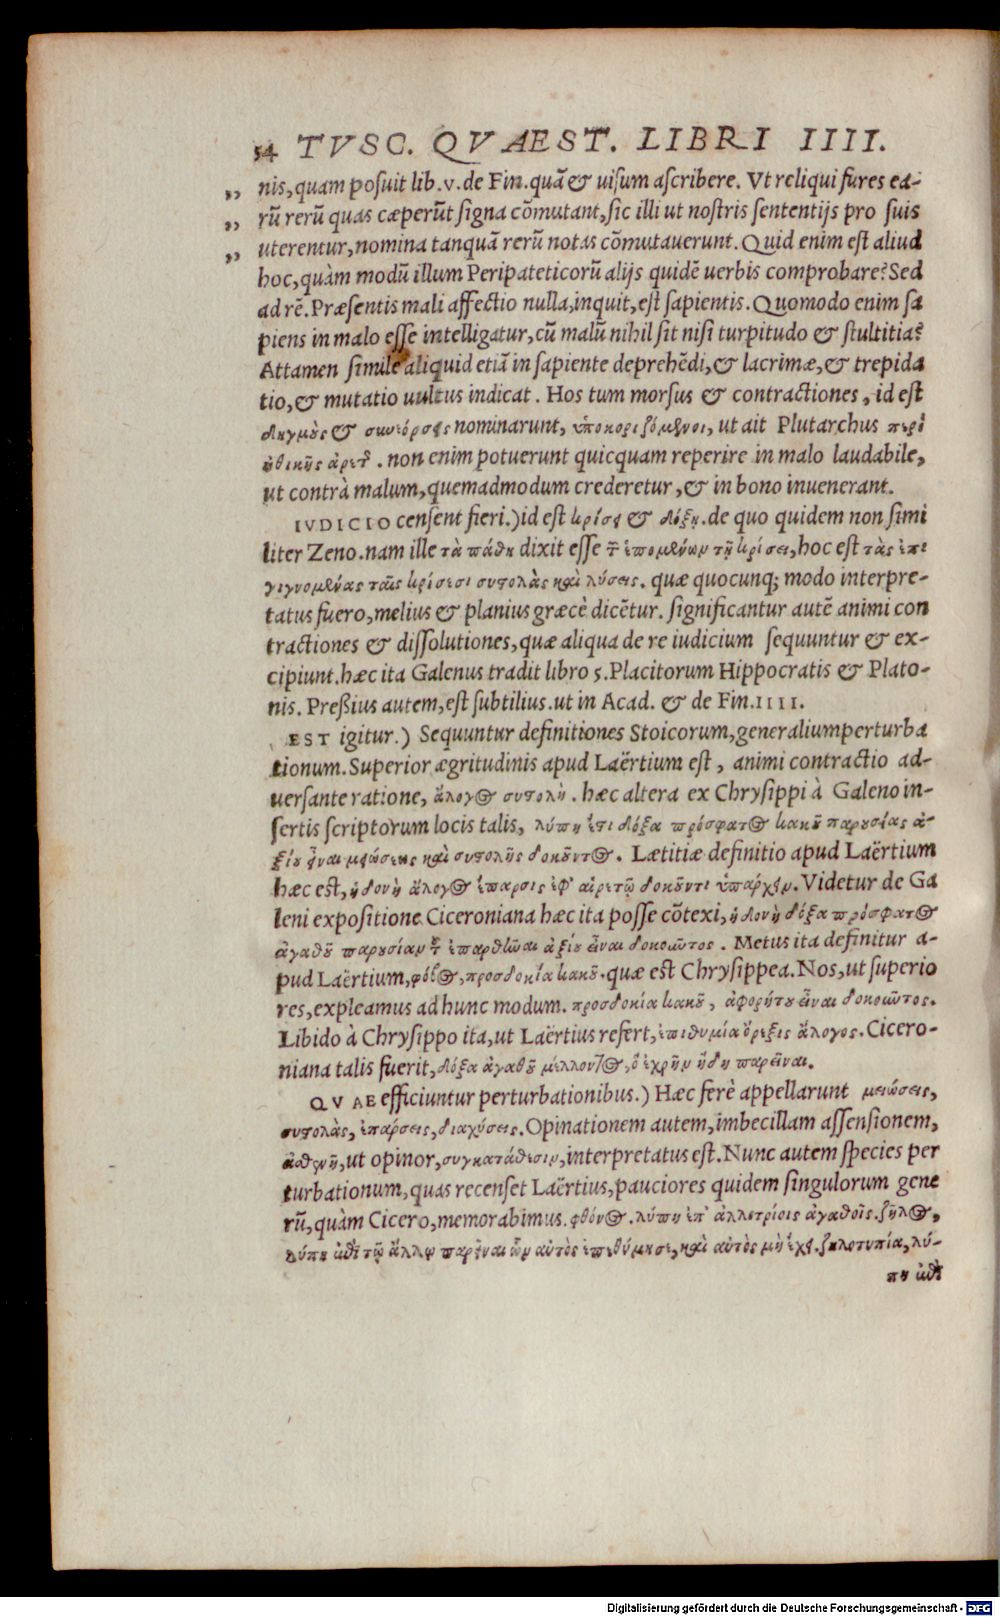 54 TVSC. QVAEST. LIBRI IIII.
„ nis, quam posuit lib. v. de Fin. quã & uisum ascribere. Vt reliqui fures ea-
„ rũ rerũ quas cæperũt signa cõmutant, sic illi ut nostris sententijs pro suis
„ uterentur, nomina tanquã rerũ notas cõmutauerunt. Quid enim est aliud
hoc, quàm modũ illum Peripateticorũ alijs quidẽ uerbis comprobare? Sed
ad rẽ. Præsentis mali affectio nulla, inquit, est sapientis. Quomodo enim sa
piens in malo esse intelligatur, cũ malũ nihil sit nisi turpitudo & stultitia?
Attamen simile aliquid etiã in sapiente deprehẽdi, & lacrimæ, & trepida
tio, & mutatio uultus indicat. Hos tum morsus & contractiones, id est
δηγμοὺς & συνεόρσεις nominarunt, ὑποκοριζόμενοι, ut ait Plutarchus περὶ
ἠθικῆς ἀρετῆς. non enim potuerunt quicquam reperire in malo laudabile,
ut contrà malum, quemadmodum crederetur, & in bono inuenerant.
IVDICIO censent fieri.) id est κρίσει & δόξῃ. de quo quidem non simi
liter Zeno. nam ille τὰ πάθη dixit esse τῶν ἑπομένων τῇ κρίσει, hoc est τὰς ἐπι
γιγνομένας ταῖς κρίσεσι συστολὰς καὶ λύσεις. quæ quocunq; modo interpre-
tatus fuero, melius & planius græcè dicẽtur. significantur autẽ animi con
tractiones & dissolutiones, quæ aliqua de re iudicium sequuntur & ex-
cipiunt. hæc ita Galenus tradit libro 5. Placitorum Hippocratis & Plato-
nis. Preßius autem, est subtilius. ut in Acad. & de Fin. IIII.
EST igitur.) Sequuntur definitiones Stoicorum, generalium perturba
tionum. Superior ægritudinis apud Laërtium est, animi contractio ad-
uersante ratione, ἄλογος συστολή. hæc altera ex Chrysippi à Galeno in-
sertis scriptorum locis talis, λύπη ἐστι δόξα πρόσφατος κακοῦ παρουσίας ἀ-
ξίου εἶναι μειώσεως καὶ συστολῆς δοκοῦντος. Lætitiæ definitio apud Laërtium
hæc est, ἡδονὴ ἄλογος ἔπαρσις ἐφ' αἱρετῷ δοκοῦντι ὑπάρχειν. Videtur de Ga
leni expositione Ciceroniana hæc ita posse cõtexi, ἡδονὴ δόξα πρόσφατος
ἀγαθοῦ παρουσίαν ἐπαρθῶναι ἀξίου εἶναι δοκοῶτος. Metus ita definitur a-
pud Laërtium, φόβος, προσδοκία κακοῦ. quæ est Chrysippea. Nos, ut superio
res, expleamus ad hunc modum. προσδοκία κακοῦ, ἀφορήτου εἶναι δοκοῶτος.
Libido à Chrysippo ita, ut Laërtius refert, ἐπιθυμία ὄρεξις ἄλογος. Cicero-
niana talis fuerit, δόξα ἀγαθοῦ μέλλοντος, ὃ ἐχρῆν ἤδη παρεῖναι.
QVAE efficiuntur perturbationibus.) Hæc ferè appellarunt μειώσεις,
συστολὰς, ἐπάρσεις, διαχύσεις. Opinationem autem, imbecillam assensionem,
ἀσθενῆ, ut opinor, συγκατάθεσιν, interpretatus est. Nunc autem species per
turbationum, quas recenset Laërtius, pauciores quidem singulorum gene
rũ, quàm Cicero, memorabimus. φθόνος. λύπη ἐπ' ἀλλοτρίοις ἀγαθοῖς. ζῆλος,
λύπη ἐπὶ τῷ ἄλλῳ παρεῖναι ὧν αὐτὸς ἐπεθύμησε, καὶ αὐτὸς μὴ ἔχει. ζηλοτυπία, λύ-
πη ἐπὶ
Digitalisierung gefördert durch die Deutsche Forschungsgemeinschaft - DFG